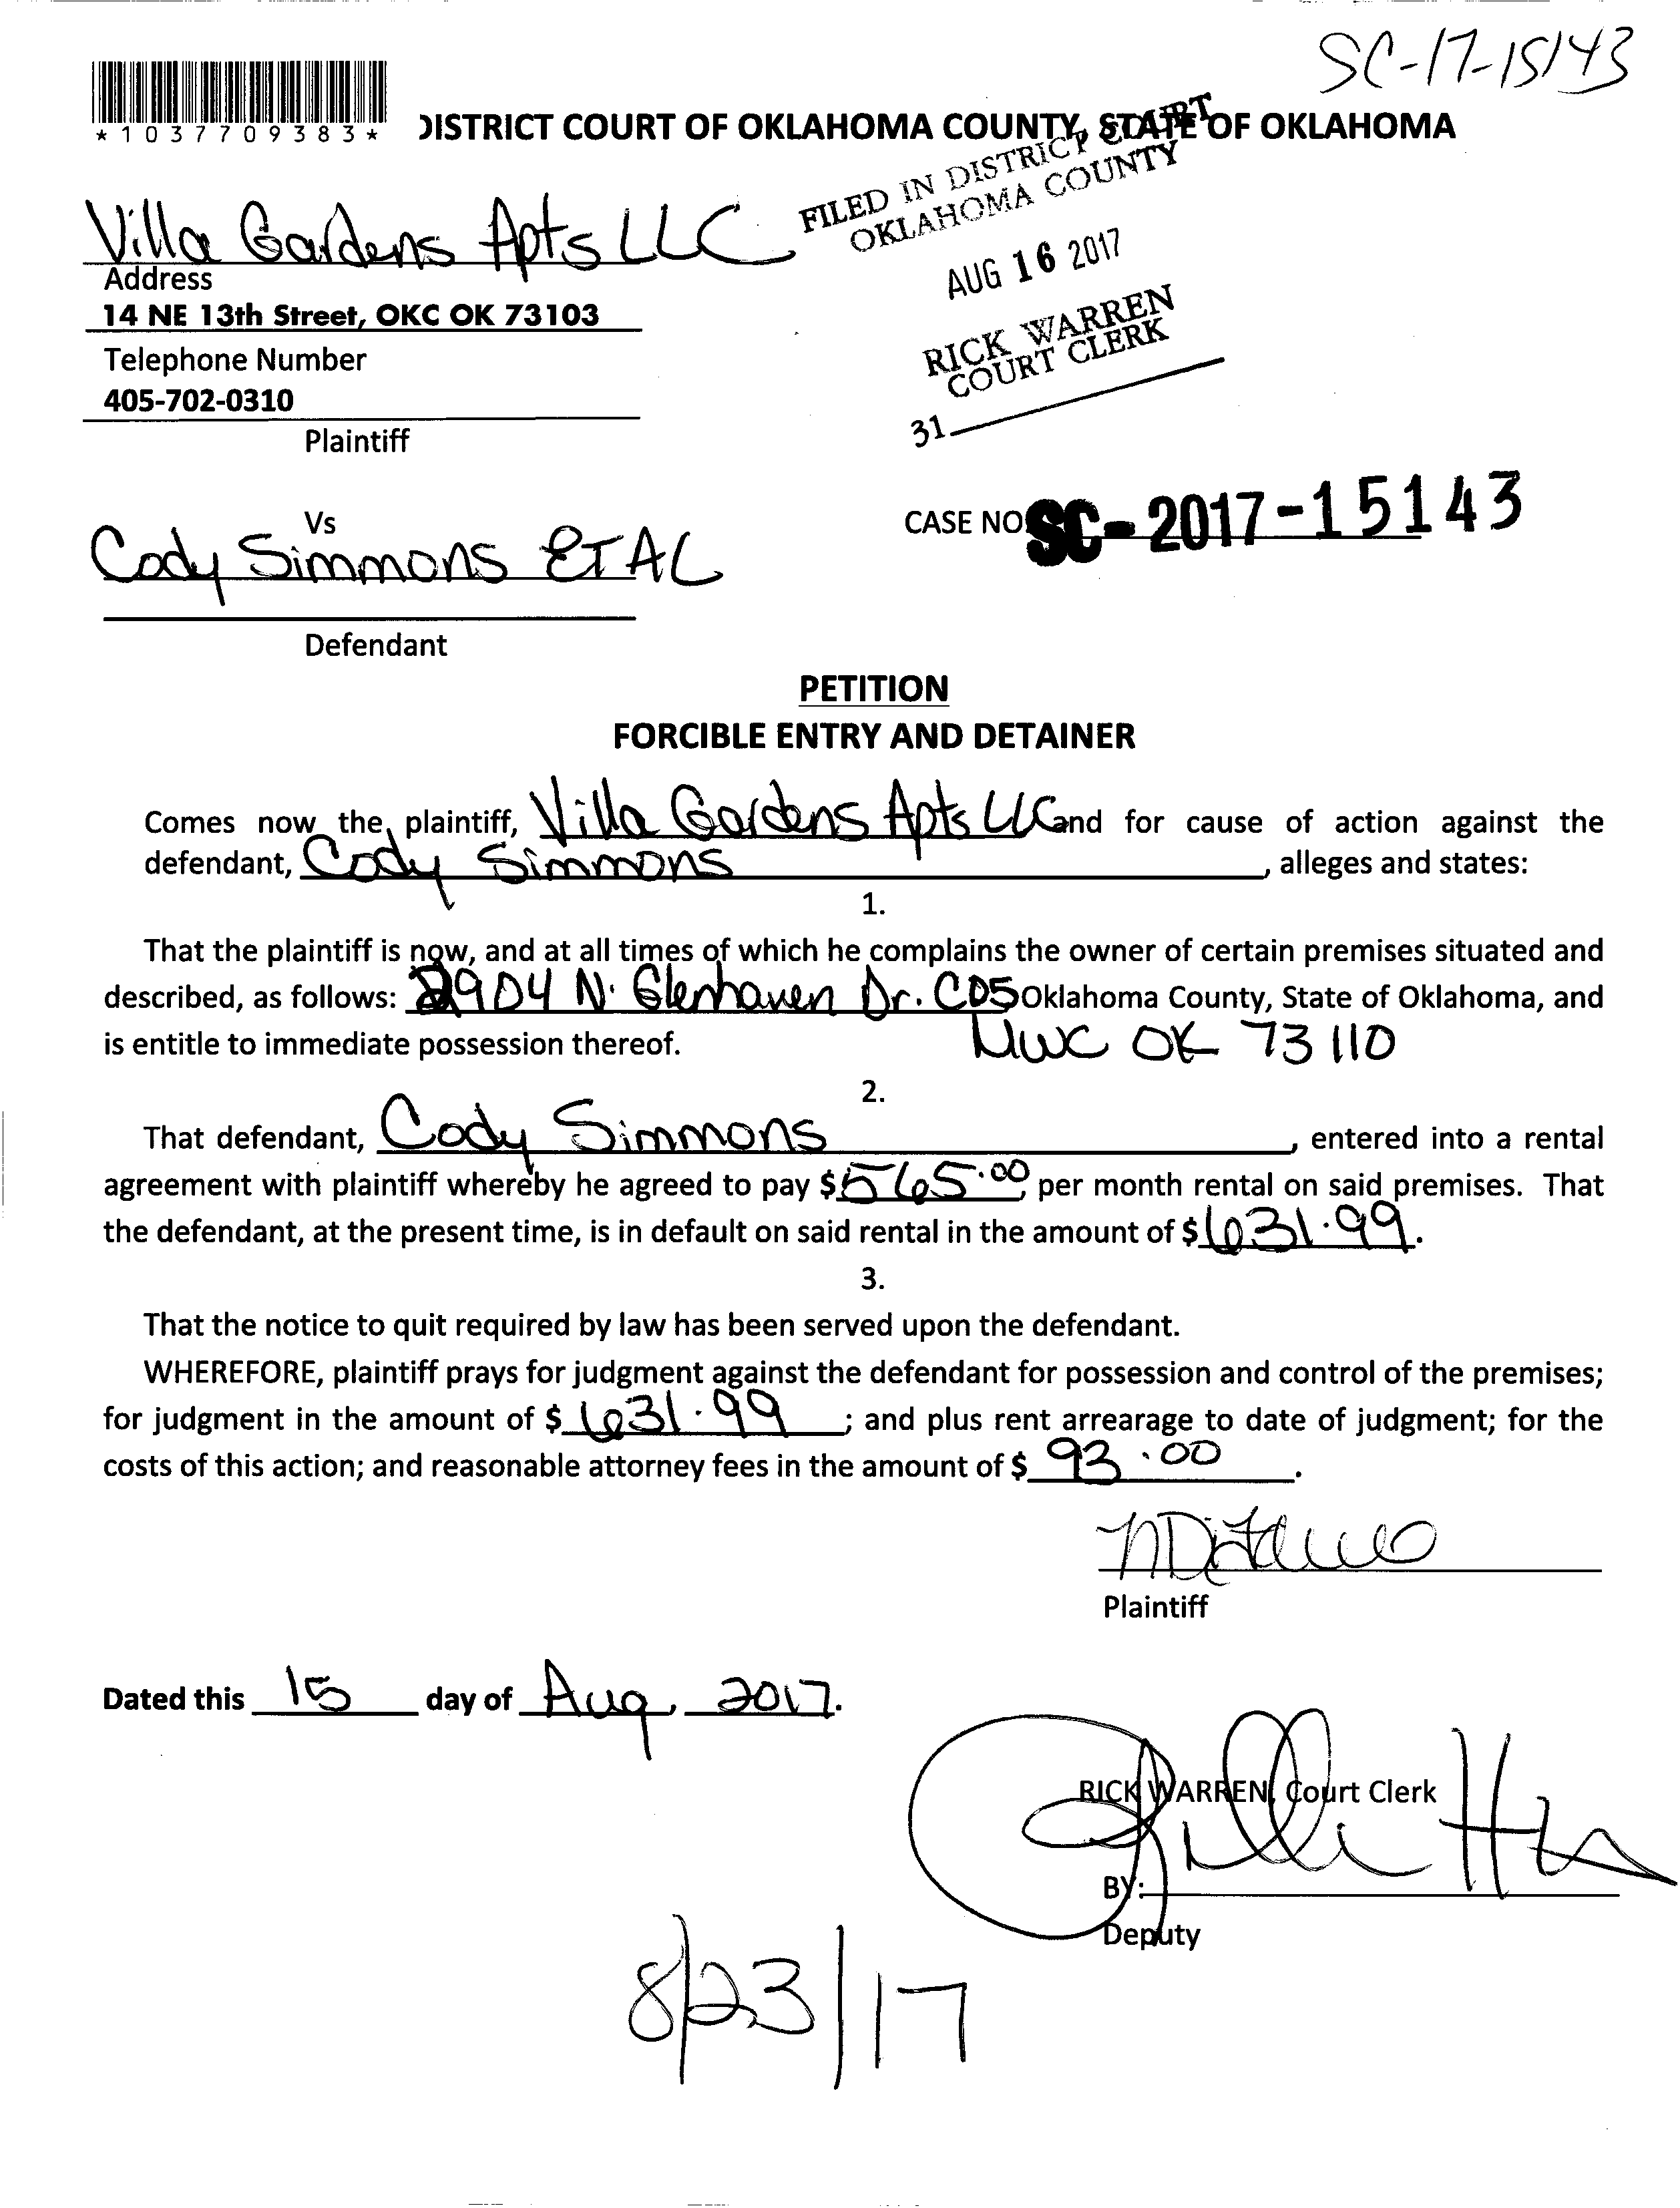 SC-17-15143
*1037709383*
DISTRICT COURT OF OKLAHOMA COUNTY, STATE OF OKLAHOMA
FILED IN DISTRICT COURT
OKLAHOMA COUNTY
AUG 16 2017
RICK WARREN
COURT CLERK
31
Villa Gardens Apts LLC
Address
14 NE 13th Street, OKC OK 73103
Telephone Number
405-702-0310
Plaintiff
Vs
CASE NO SC-2017-15143
Cody Simmons ETAL
Defendant
PETITION
FORCIBLE ENTRY AND DETAINER
Comes now the plaintiff, Villa Gardens Apts LLC and for cause of action against the
defendant, Cody Simmons, alleges and states:
1.
That the plaintiff is now, and at all times of which he complains the owner of certain premises situated and
described, as follows: 2904 N. Glenhaven Dr. C05 Oklahoma County, State of Oklahoma, and
is entitle to immediate possession thereof. MWC OK 73110
2.
That defendant, Cody Simmons, entered into a rental
agreement with plaintiff whereby he agreed to pay $565.00, per month rental on said premises. That
the defendant, at the present time, is in default on said rental in the amount of $631.99.
3.
That the notice to quit required by law has been served upon the defendant.
WHEREFORE, plaintiff prays for judgment against the defendant for possession and control of the premises;
for judgment in the amount of $ 631.99; and plus rent arrearage to date of judgment; for the
costs of this action; and reasonable attorney fees in the amount of $ 93.00.
Plaintiff
Dated this 15 day of Aug, 2017.
RICK WARREN, Court Clerk
BY:
Deputy
8/23/17